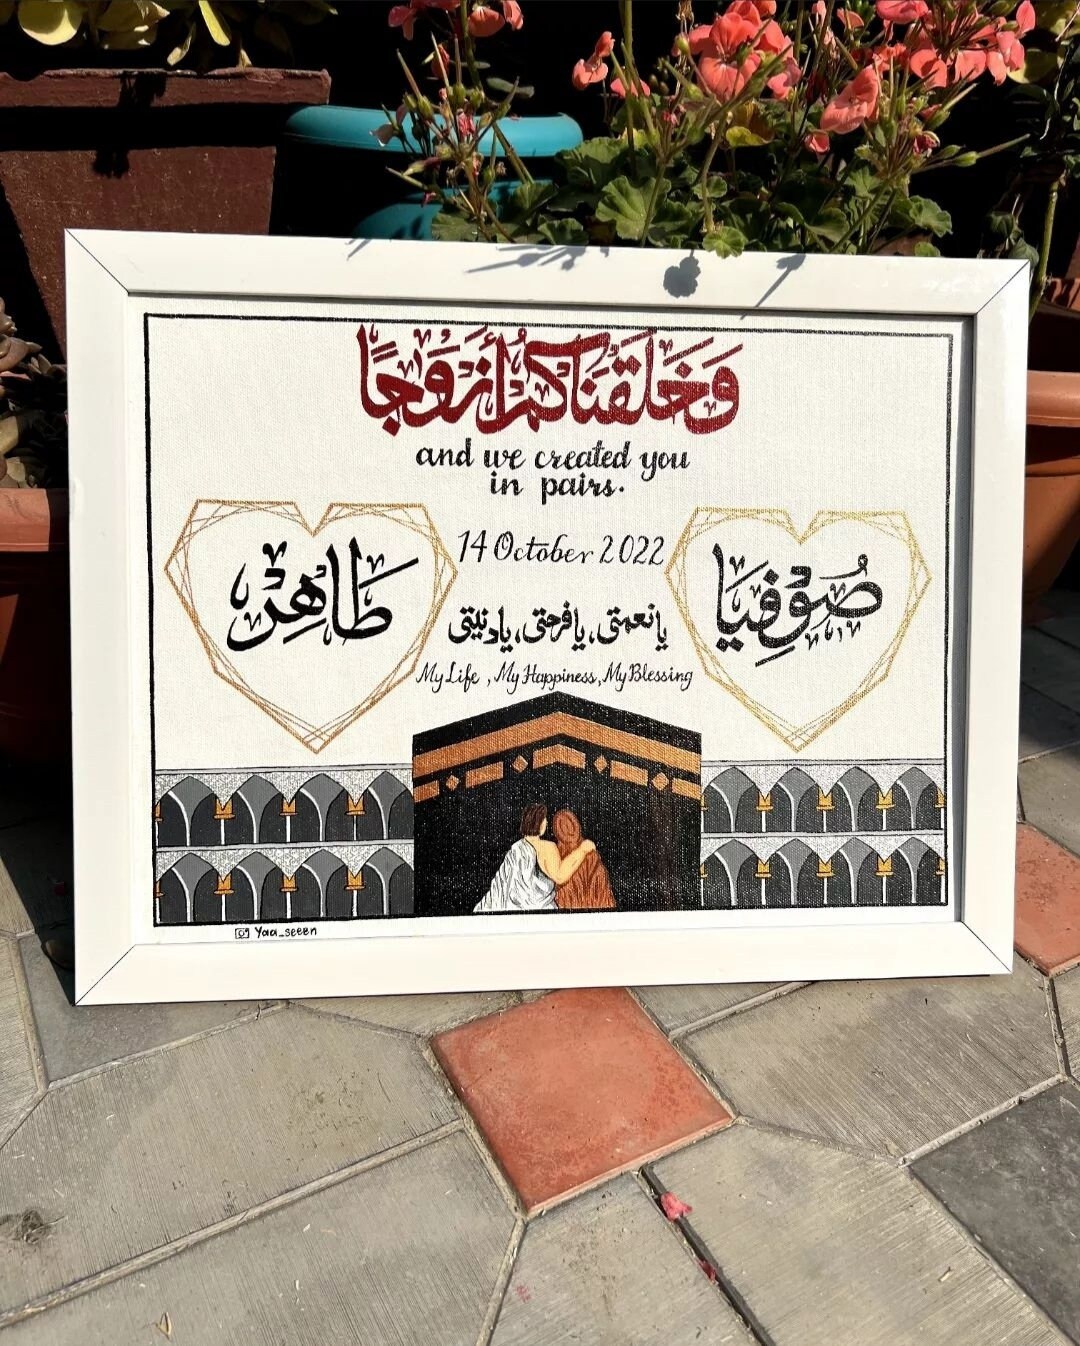 وَخَلَقْنَاكُمْ أَزْوَٰجًا
and we created you
in pairs.
14 October 2022
طَاهِرْ
صُوْفِيَا
يا نعمتي، يا فرحتي، يا دنيتي
My Life , My Happiness, My Blessing
Yaa_seeen